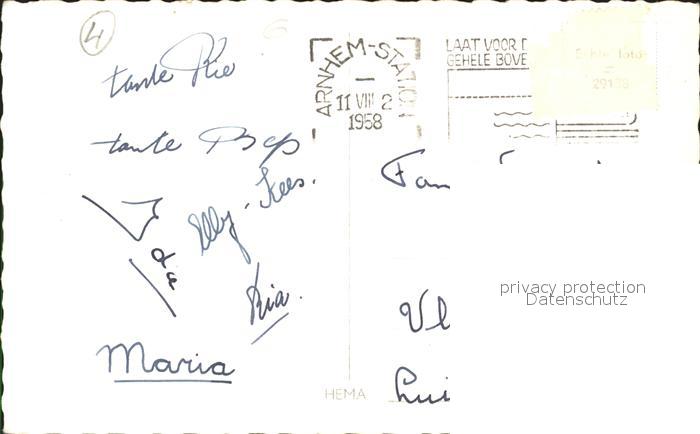 4
tante Rie
tante Bep
Elly - Kees.
Ria.
Maria
ARNHEM-STATION
11 VIII 2
1958
LAAT VOOR D
GEHELE BOVE
29138
Fam
Vl
Lui
HEMA
privacy protection
Datenschutz